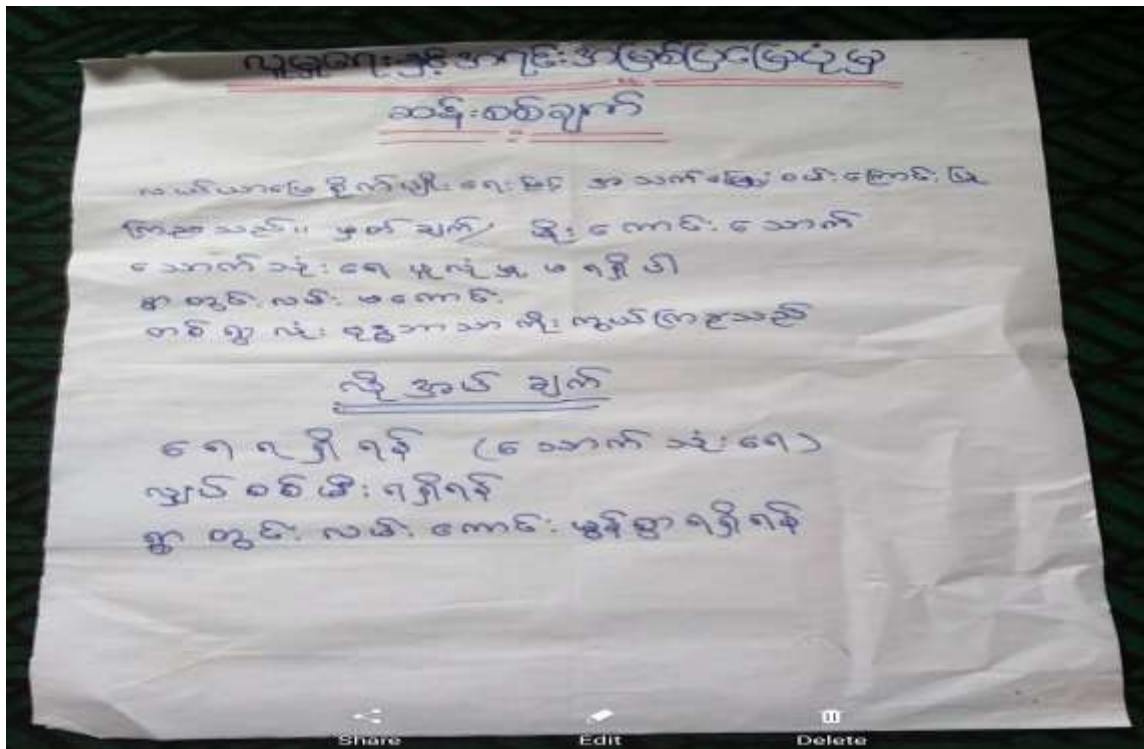 လူမှုရေးနှင့်အရင်းအမြစ်ပြမြေပုံမှ
ဆန်းစစ်ချက်
လယ်ယာမြေစိုက်ပျိုးရေးဖြင့် အသက်မွေးဝမ်းကြောင်းပြု
ကြသည်။ မှတ်ချက်/ မိုးကောင်းသောက်
သောက်သုံးရေ ဖူလုံမှု မရရှိပါ
ရွာတွင်းလမ်းမကောင်း
တစ်ရွာလုံးဗုဒ္ဓဘာသာကိုးကွယ်ကြသည်
လိုအပ်ချက်
ရေရရှိရန် (သောက်သုံးရေ)
လျှပ်စစ်မီးရရှိရန်
ရွာတွင်းလမ်းကောင်းမွန်စွာရရှိရန်
Share Edit Delete